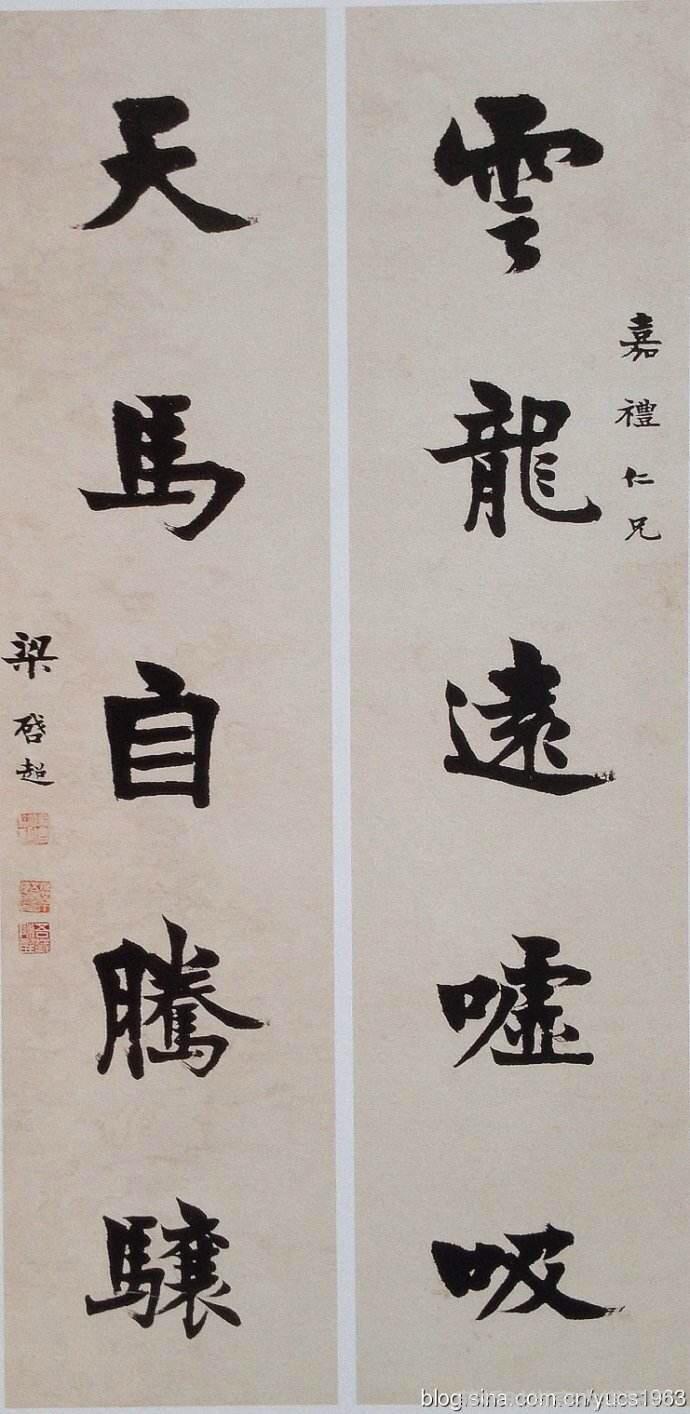 嘉禮仁兄
雲龍遠嘘吸
天馬自騰驤
梁啓超
blog.sina.com.cn/yucs1963